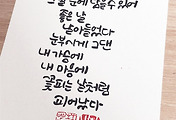 그늘 눈에 담을 수 있어
좋은 날
날아들었다
눈부시게 그댄
내 가슴에
내 마음에
꽃피는 날처럼
피어났다